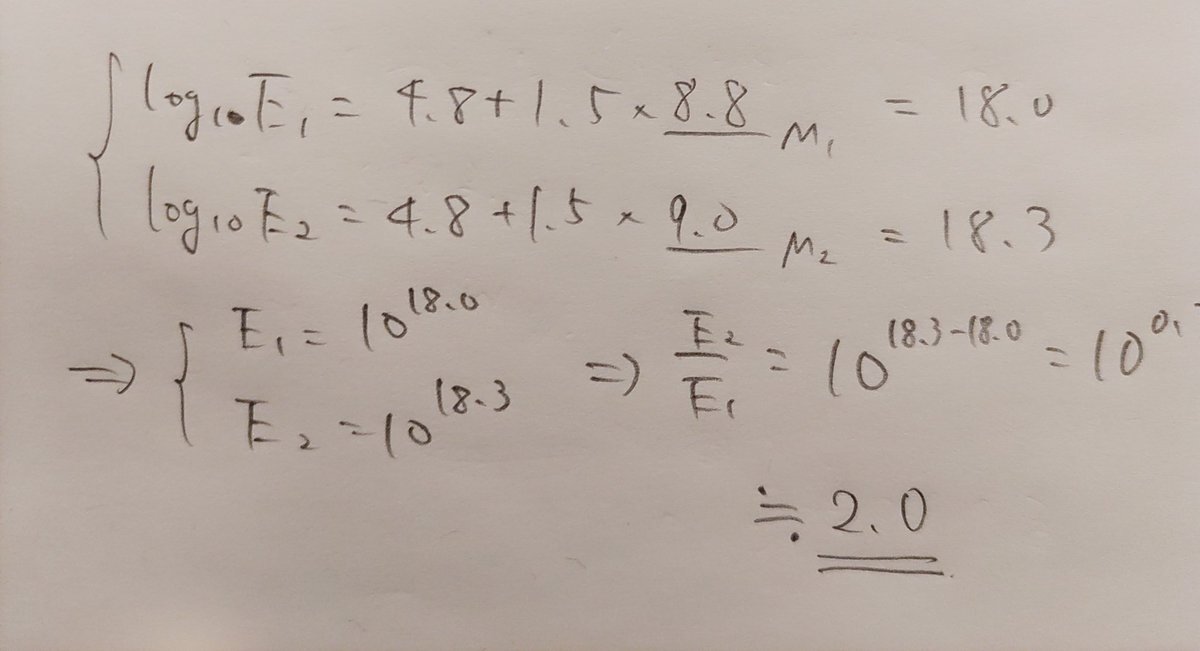 log₁₀E₁ = 4.8+1.5×8.8 M₁ = 18.0
log₁₀E₂ = 4.8+1.5×9.0 M₂ = 18.3
⇒ { E₁ = 10^18.0
E₂ = 10^18.3 ⇒ E₂/E₁ = 10^18.3-18.0 = 10^0.
≒ 2.0